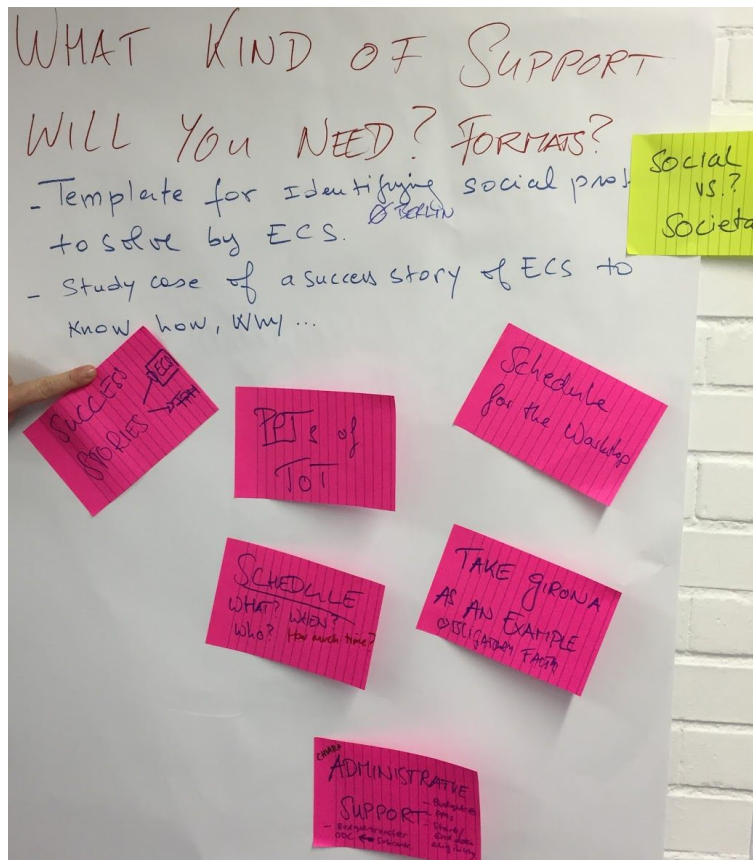 WHAT KIND OF SUPPORT
WILL YOU NEED? FORMATS?
- Template for Identifying social prob
Ø BERLIN
to solve by ECS.
- Study case of a success story of ECS to
know how, Why ...
SOCIAL
VS.?
SOCIETA
SUCCESS
STORIES
ECS
PPTs of
TOT
Schedule
for the Workshop
SCHEDULE
WHAT? WHEN?
WHO? How much time?
TAKE GIRONA
AS AN EXAMPLE
OBLIGATORY FACTS
ADMINISTRATIVE
SUPPORT
- Budget
- Start/
End date
eligibility